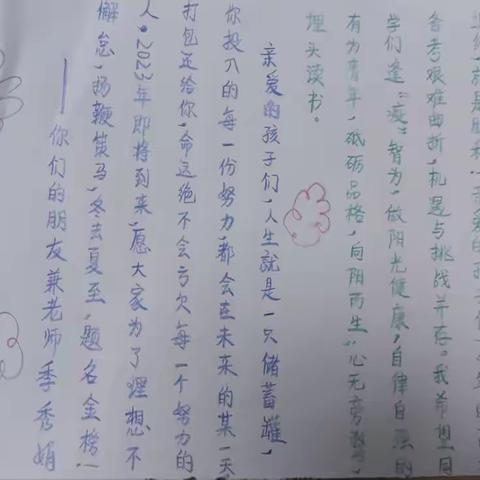 备考艰难曲折,机遇与挑战并存。我希望同
学们逢“疫”智为,做阳光健康,自律自强的
有为青年,砥砺品格,向阳而生,心无旁骛,
埋头读书。
亲爱的孩子们,人生就是一只储蓄罐,
你投入的每一份努力,都会在未来的某一天
打包还给你,命运绝不会亏欠每一个努力的
人,2023年即将到来,愿大家为了理想不
懈怠,扬鞭策马,冬去夏至,题名金榜!
——你们的朋友兼老师季秀娟